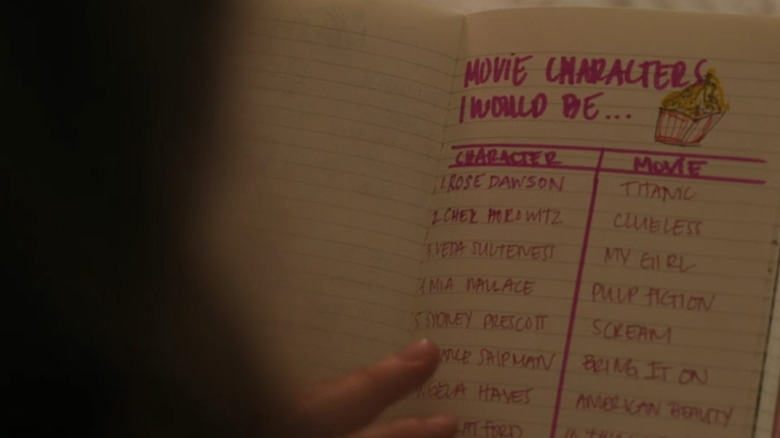 MOVIE CHARACTERS
I WOULD BE...
CHARACTER MOVIE
1. ROSE DAWSON TITANIC
2. CHER HOROWITZ CLUELESS
3. VEDA SULTENFUSS MY GIRL
4. MIA WALLACE PULP FICTION
5. SYDNEY PRESCOTT SCREAM
SHIPMAN BRING IT ON
ANGELA HAYES AMERICAN BEAUTY